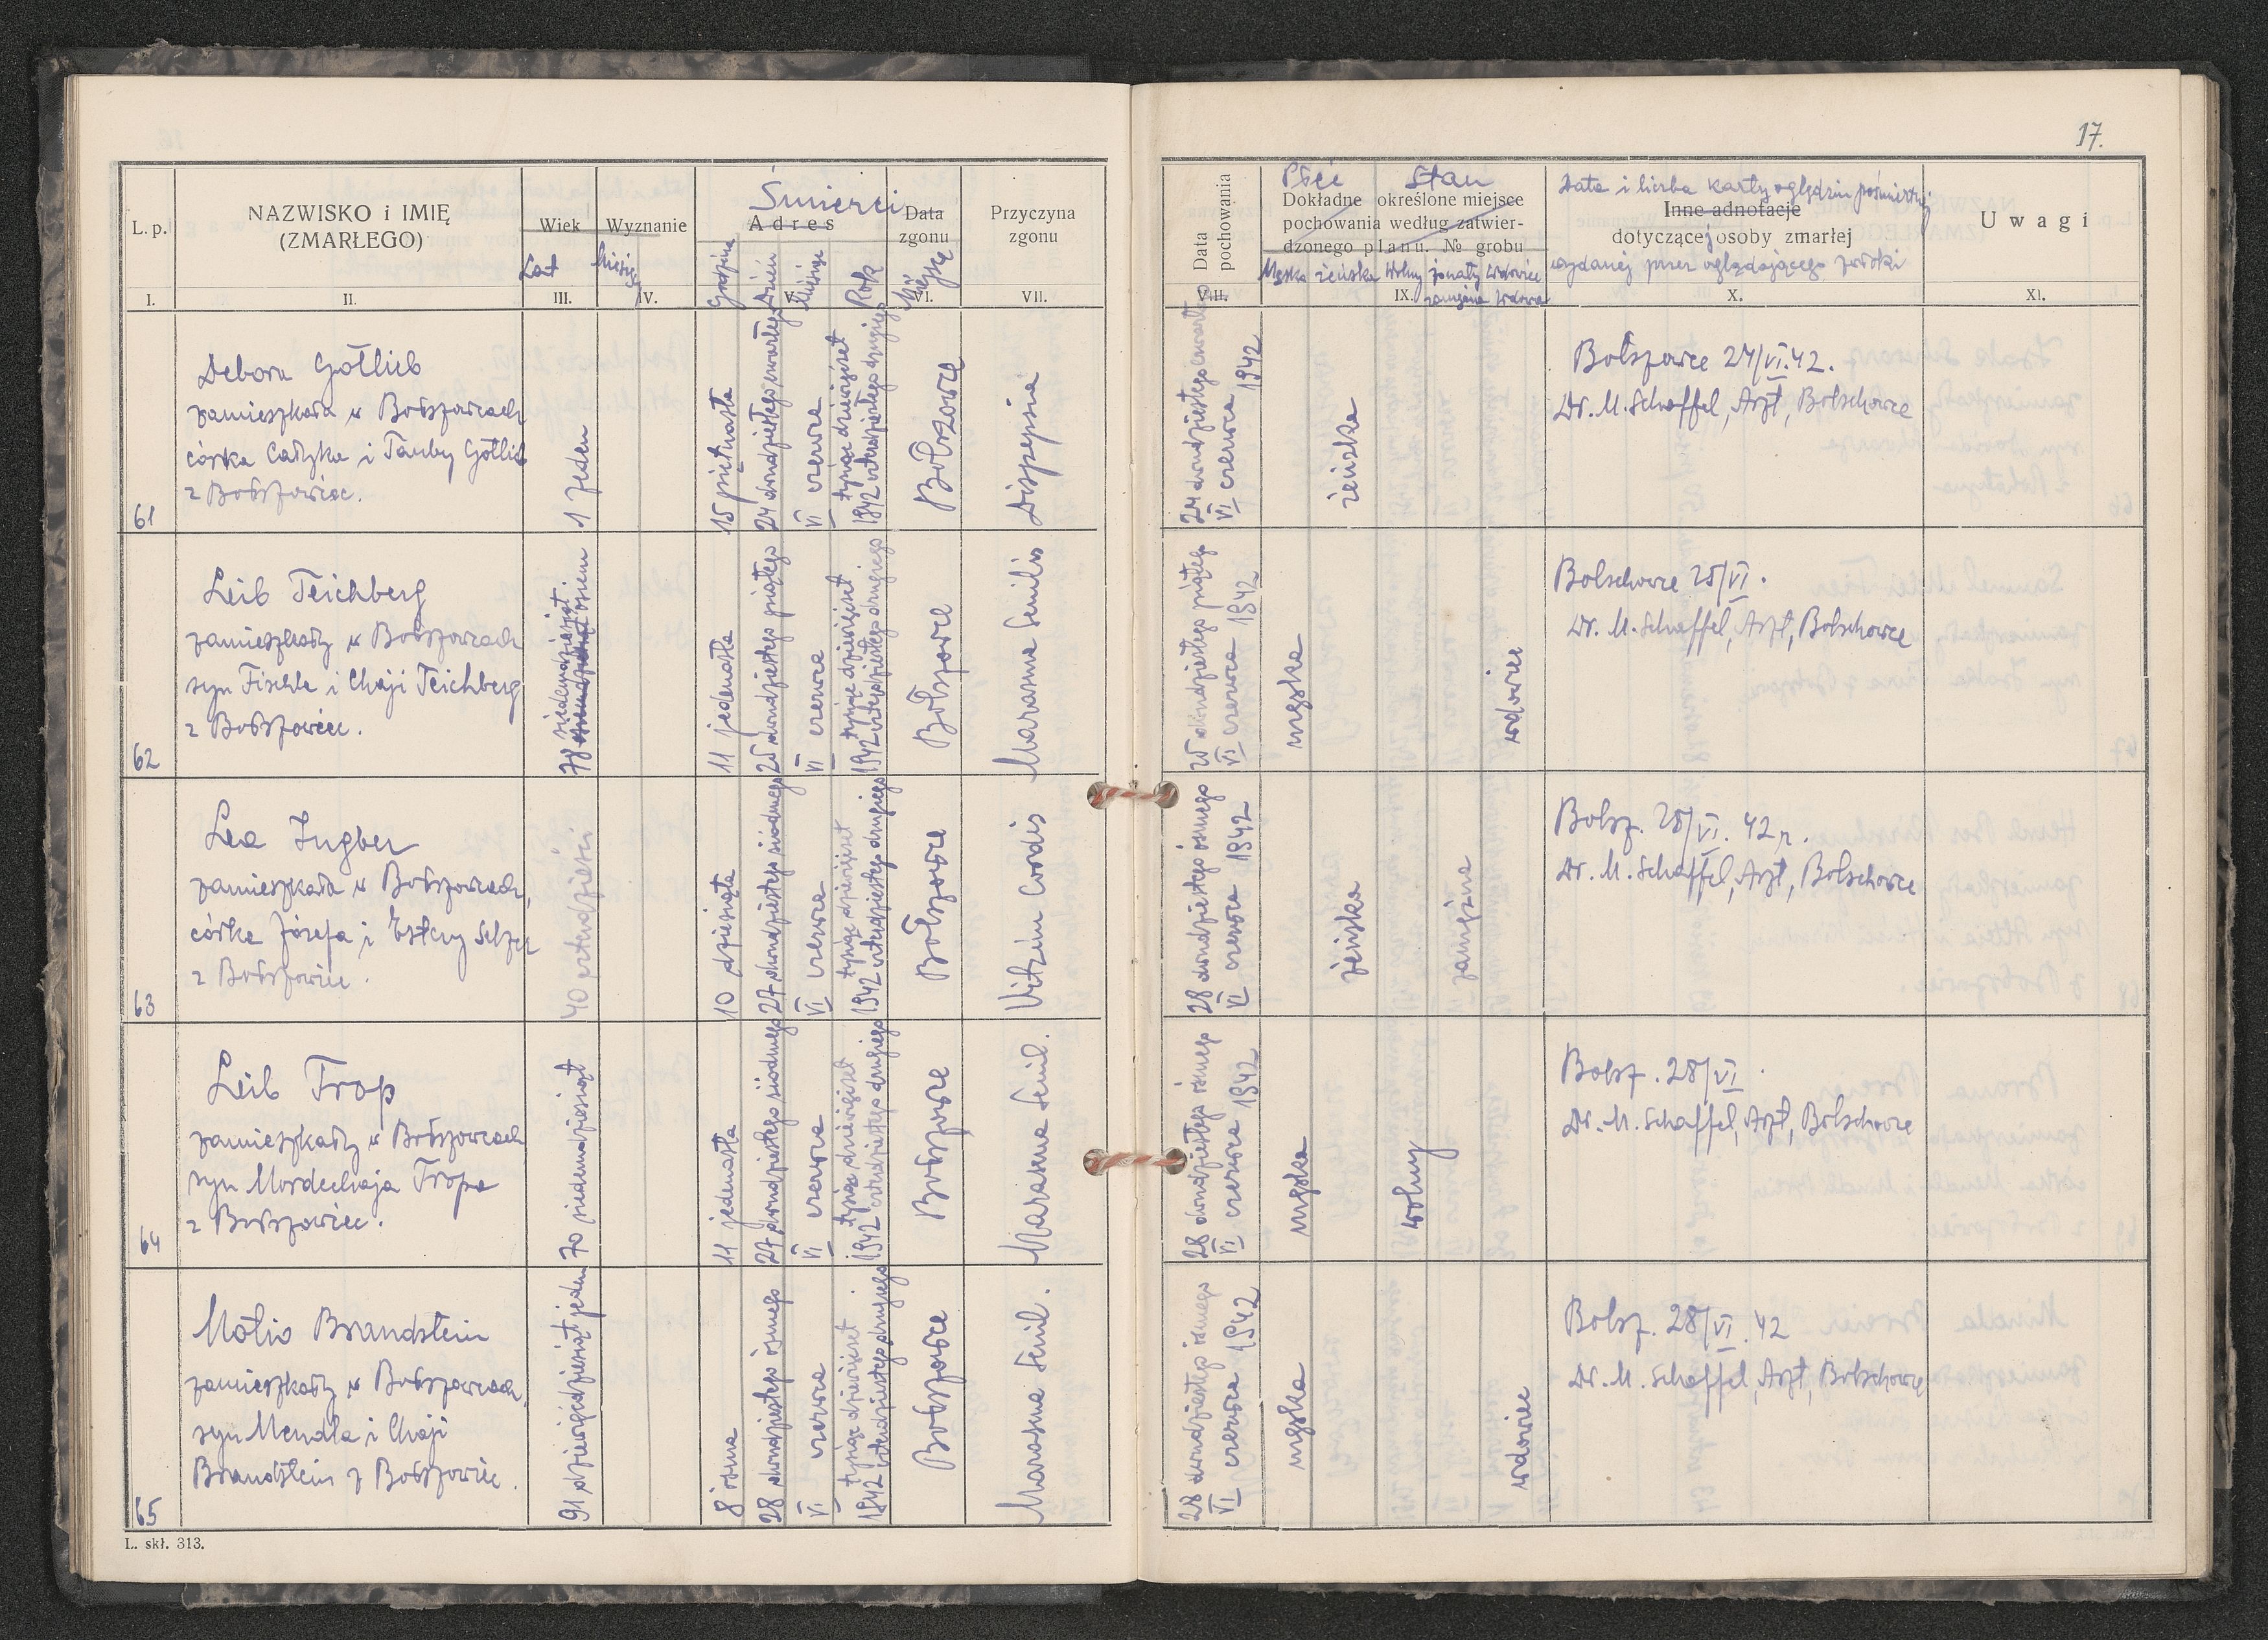 17.
L. p.
NAZWISKO i IMIĘ
(ZMARŁEGO)
Wiek
Wyznanie
Lat
Miesięc
Śmierci
Adres
Godzina
Dzień
Miesiąc
Rok
Data
zgonu
Miejsce
Przyczyna
zgonu
I.
II.
III.
IV.
V.
VI.
VII.
Data
pochowania
Płeć Stan
Dokładne określone miejsce
pochowania według zatwier-
dzonego planu. № grobu
Męska żeńska Wolny żonaty wdowiec
zamężna wdowa
Data i liczba karty oględzin pośmiertnej
Inne adnotacje
dotyczące osoby zmarłej
wydanej przez oglądającego zwłoki
Uwagi
VIII.
IX.
X.
XI.
61
Debora Gotlieb
zamieszkała w Bołszowcach
córka Całyka i Tauby Gotlib
z Bołszowiec.
1 jeden
15 piętnasta
24 dwudziestego czwartego
VI czerwca
tysiąc dziewięćset
1942 czterdziestego drugiego
Bołszowce
Dispepsia
24 dwudziestego czwartego
VI czerwca 1942
żeńska
Bołszowce 24/VI.42.
Dr. M. Schaffel, Arzt, Bolschowce
62
Leib Teichberg
zamieszkały w Bołszowcach
syn Fischla i Chaji Teichberg
z Bołszowiec.
78 siedemdziesiąt osiem
11 jedenasta
25 dwudziestego piątego
VI czerwca
tysiąc dziewięćset
1942 czterdziestego drugiego
Bołszowce
Marasmus Senilis
25 dwudziestego piątego
VI czerwca 1942
męska
wdowiec
Bolschowce 25/VI.
Dr. M. Schaffel, Arzt, Bolschowce
63
Lea Ingber
zamieszkała w Bołszowcach,
córka Józefa i Estery
z Bołszowiec.
40 czterdzieści
10 dziesiąta
27 dwudziestego siódmego
VI czerwca
tysiąc dziewięćset
1942 czterdziestego drugiego
Bołszowce
Vitzim Cordis
28 dwudziestego ósmego
VI czerwca 1942
żeńska
zamężna
Bolsz. 28/VI. 42 r.
Dr. M. Schaffel, Arzt, Bolschowce
64
Leib Trop
zamieszkały w Bołszowcach
syn Mordechaja Tropa
z Bołszowiec.
70 siedemdziesiąt
11 jedenasta
27 dwudziestego siódmego
VI czerwca
tysiąc dziewięćset
1942 czterdziestego drugiego
Bołszowce
Marasmus Senil.
28 dwudziestego ósmego
VI czerwca 1942
męska
wolny
Bolsz. 28/VI.
Dr. M. Schaffel, Arzt, Bolschowce
65
Motio Brandstein
zamieszkały w Bołszowcach,
syn Mendla i Chaji
Brandstein z Bołszowiec.
91 dziewięćdziesiąt jeden
8 ósma
28 dwudziestego ósmego
VI czerwca
tysiąc dziewięćset
1942 czterdziestego drugiego
Bołszowce
Marasmus Senil.
28 dwudziestego ósmego
VI czerwca 1942
męska
wdowiec
Bolsz. 28/VI.42
Dr. M. Schaffel, Arzt, Bolschowce
L. skł. 313.